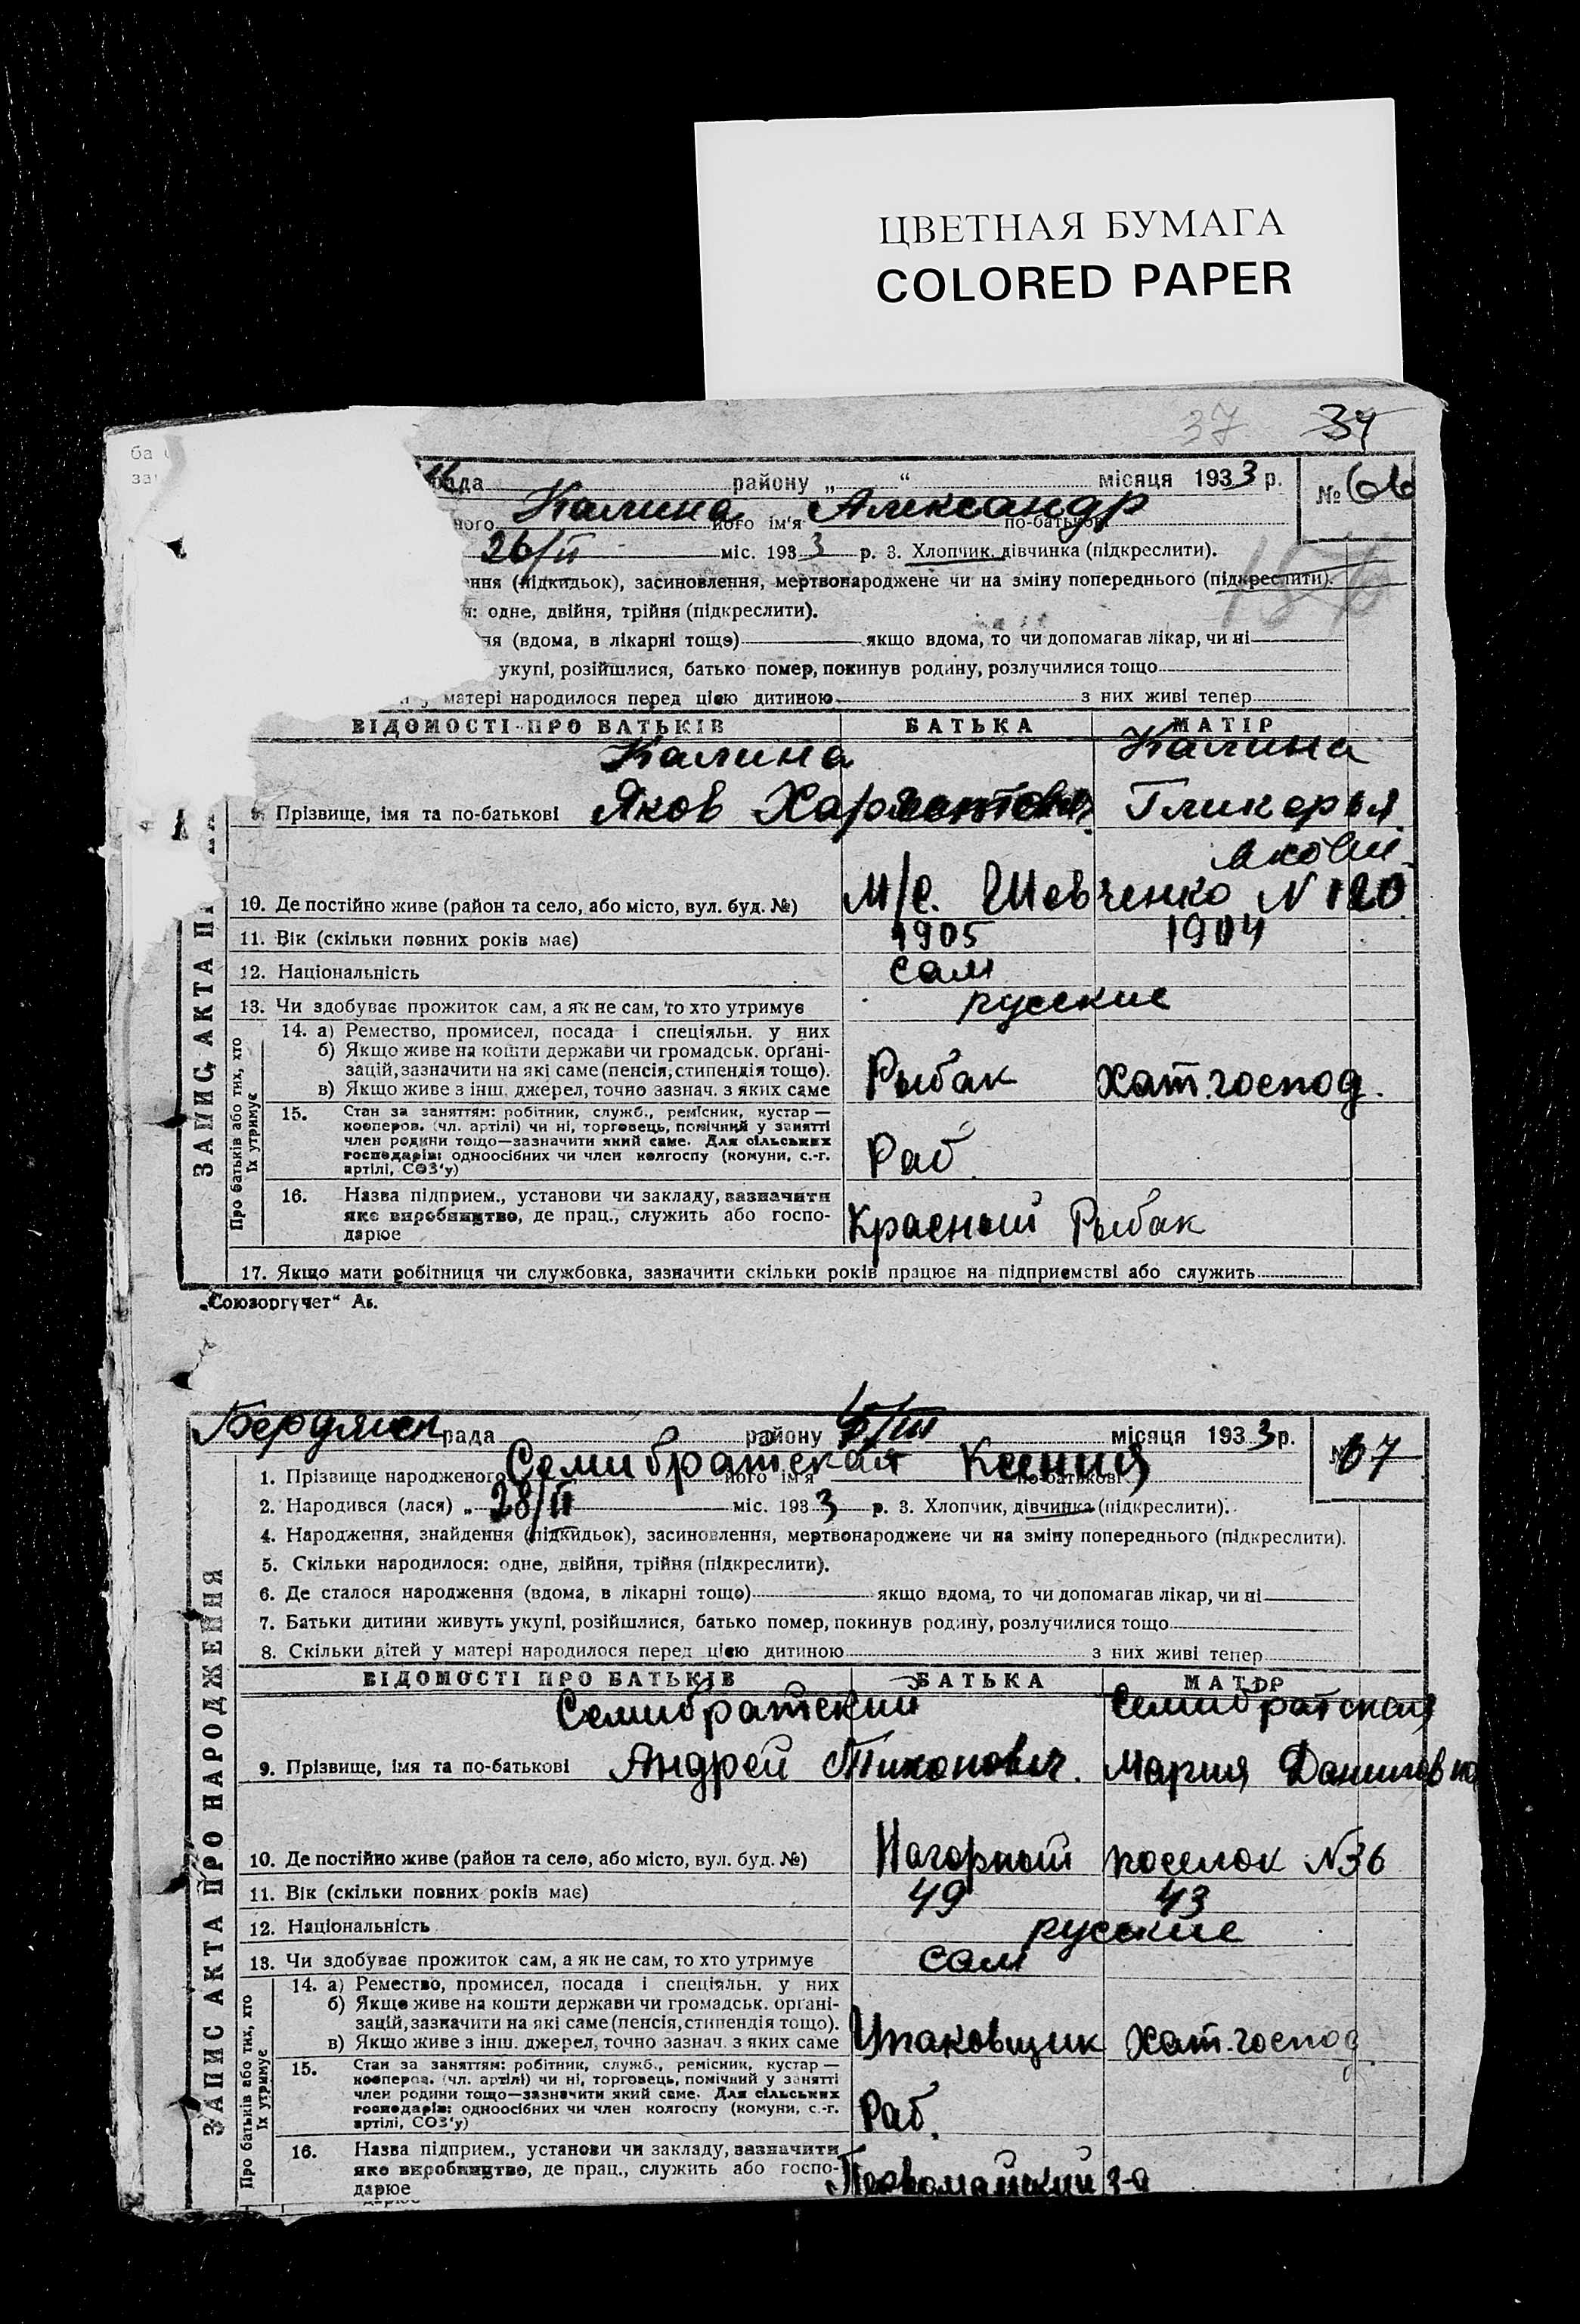 ЦВЕТНАЯ БУМАГА
COLORED PAPER
37 34
рада району „ “ місяця 1933 р. № 66
ного Калина його ім'я Александр по-батькові
26/II міс. 1933 р. 3. Хлопчик, дівчинка (підкреслити).
ння (підкидьок), засиновлення, мертвонароджене чи на зміну попереднього (підкреслити).
я: одне, двійня, трійня (підкреслити).
ня (вдома, в лікарні тощо) якщо вдома, то чи допомагав лікар, чи ні
укупі, розійшлися, батько помер, покинув родину, розлучилися тощо
у матері народилося перед цією дитиною з них живі тепер
ВІДОМОСТІ ПРО БАТЬКІВ БАТЬКА МАТІР
Калина Калина
9. Прізвище, імя та по-батькові Яков Гликерья
10. Де постійно живе (район та село, або місто, вул. буд. №) М/С. Шевченко N 120
11. Вік (скільки повних років має) 1905 1904
12. Національність сам
13. Чи здобуває прожиток сам, а як не сам, то хто утримує русские
ЗАПИС АКТА П
Про батьків або тих, хто
їх утримує
14. а) Ремество, промисел, посада і спеціяльн. у них
б) Якщо живе на кошти держави чи громадськ. органі-
зацій, зазначити на які саме (пенсія, стипендія тощо).
в) Якщо живе з інш. джерел, точно зазнач. з яких саме
Рыбак Хат. господ.
15. Стан за заняттям: робітник, служб., ремісник, кустар —
кооперов. (чл. артілі) чи ні, торговець, помічний у занятті
член родини тощо—зазначити який саме. Для сільських
господарів: одноосібних чи член колгоспу (комуни, с.-г.
артілі, СОЗ'у)
Раб
16. Назва підприєм., установи чи закладу, зазначити
яке виробництво, де прац., служить або госпо-
дарює
Красный Рыбак
17. Якщо мати робітниця чи службовка, зазначити скільки років працює на підприємстві або служить
„Союзоргучет“ Ав.
Бердянск рада району 5/III місяця 1933 р. № 67
1. Прізвище народженого Семибратская його ім'я Ксения по-батькові
2. Народився (лася) „ 28/II міс. 1933 р. 3. Хлопчик, дівчинка (підкреслити).
4. Народження, знайдення (підкидьок), засиновлення, мертвонароджене чи на зміну попереднього (підкреслити).
5. Скільки народилося: одне, двійня, трійня (підкреслити).
6. Де сталося народження (вдома, в лікарні тощо) якщо вдома, то чи допомагав лікар, чи ні
7. Батьки дитини живуть укупі, розійшлися, батько помер, покинув родину, розлучилися тощо
8. Скільки дітей у матері народилося перед цією дитиною з них живі тепер
ВІДОМОСТІ ПРО БАТЬКІВ БАТЬКА МАТІР
Семибратский Семибратская
9. Прізвище, імя та по-батькові Андрей Тихонович. Мария Даниловна
10. Де постійно живе (район та село, або місто, вул. буд. №) Нагорный поселок N 36
11. Вік (скільки повних років має) 49 43
12. Національність русские
13. Чи здобуває прожиток сам, а як не сам, то хто утримує сам
ЗАПИС АКТА ПРО НАРОДЖЕННЯ
Про батьків або тих, хто
їх утримує
14. а) Ремество, промисел, посада і спеціяльн. у них
б) Якщо живе на кошти держави чи громадськ. органі-
зацій, зазначити на які саме (пенсія, стипендія тощо).
в) Якщо живе з інш. джерел, точно зазнач. з яких саме
Упаковщик Хат. господ
15. Стан за заняттям: робітник, служб., ремісник, кустар —
кооперов. (чл. артілі) чи ні, торговець, помічний у занятті
член родини тощо—зазначити який саме. Для сільських
господарів: одноосібних чи член колгоспу (комуни, с.-г.
артілі, СОЗ'у)
Раб.
16. Назва підприєм., установи чи закладу, зазначити
яке виробництво, де прац., служить або госпо-
дарює
Первомайский з-д